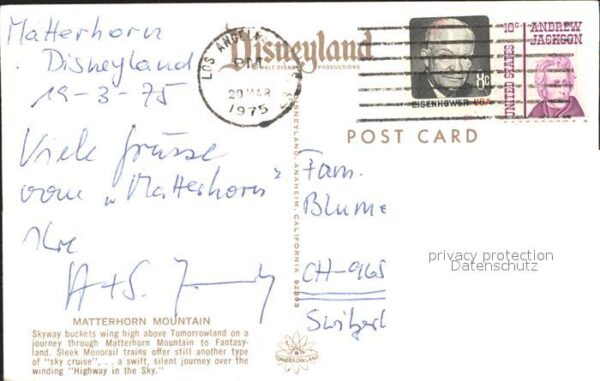 Matterhorn
Disneyland
19-3-75
Viele Grüsse
vom „Matterhorn"
Ihre
H+S.
MATTERHORN MOUNTAIN
Skyway buckets wing high above Tomorrowland on a
journey through Matterhorn Mountain to Fantasy-
land. Sleek Monorail trains offer still another type
of "sky cruise" . . . a swift, silent journey over the
winding "Highway in the Sky."
Disneyland
WALT DISNEY PRODUCTIONS
LOS ANGELES
PM
20 MAR
1975
8c
EISENHOWER USA
10c ANDREW
JACKSON
UNITED STATES
POST CARD
DISNEYLAND, ANAHEIM, CALIFORNIA 92803
Fam.
Blume
privacy protection
Datenschutz
CH-965
Switzerl